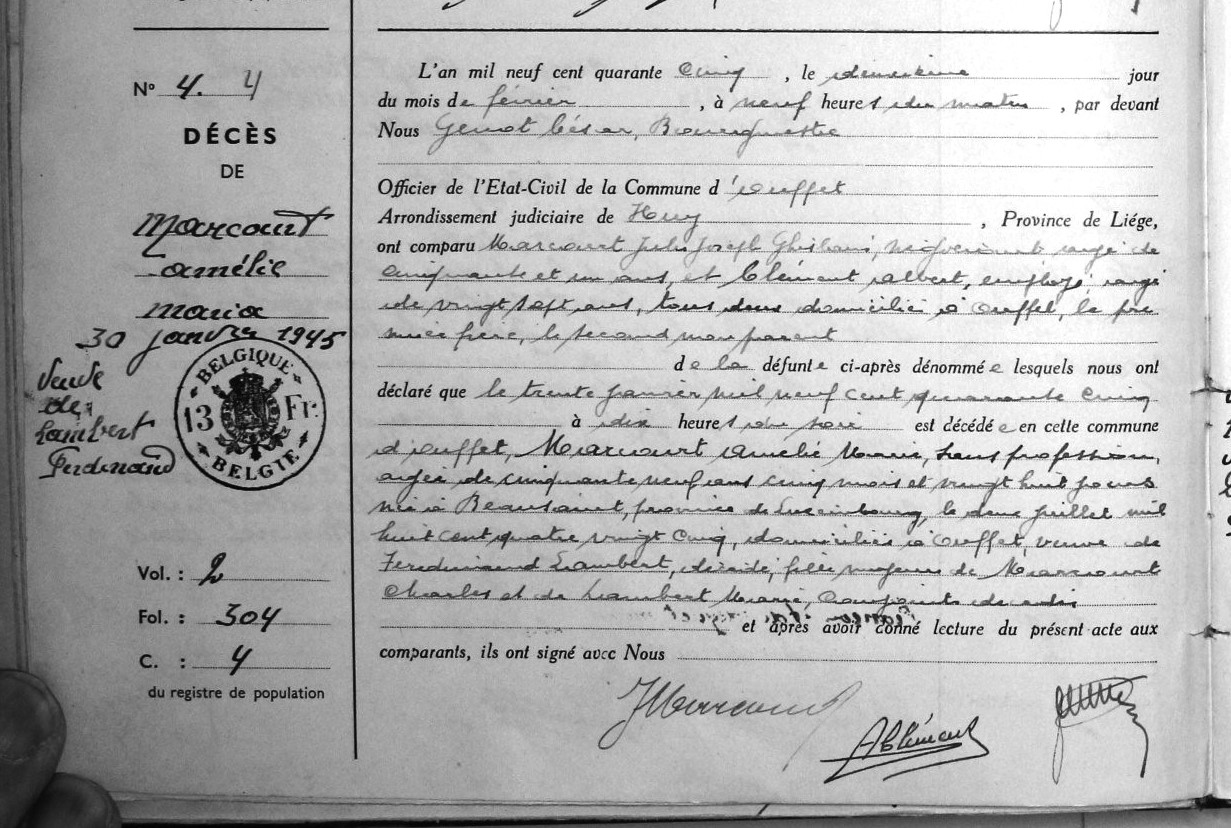 N° 4. 4
DÉCÈS
DE
Marcourt
Amélie
Maria
30 janvier 1945
Veuve
de
Lambert
Ferdinand
BELGIQUE
13 Fr.
BELGIE
Vol. : 2
Fol. : 304
C. : 4
du registre de population
L'an mil neuf cent quarante cinq, le deuxième jour
du mois de février, à neuf heures du matin, par devant
Nous Genot César, Bourgmestre
Officier de l'Etat-Civil de la Commune d'Ouffet
Arrondissement judiciaire de Huy, Province de Liége,
ont comparu Marcourt Jules Joseph Ghislain, négociant âgé de
cinquante et un ans, et Clément Albert, employé, âgé
de vingt sept ans, tous deux domiciliés à Ouffet, le pre
mier frère, le second non parent
de la défunte ci-après dénommée lesquels nous ont
déclaré que le trente janvier mil neuf cent quarante cinq
à dix heures du soir est décédée en cette commune
d'Ouffet, Marcourt Amélie Marie, sans profession,
âgée de cinquante neuf ans cinq mois et vingt huit jours
née à Beausaint, province de Luxembourg, le deux juillet mil
huit cent quatre vingt cinq, domiciliée à Ouffet, veuve de
Ferdinand Lambert, décédé, fille majeure de Marcourt
Charles et de Lambert Marie, conjoints décédés
et après avoir donné lecture du présent acte aux
comparants, ils ont signé avec Nous
JMarcourt
AClément